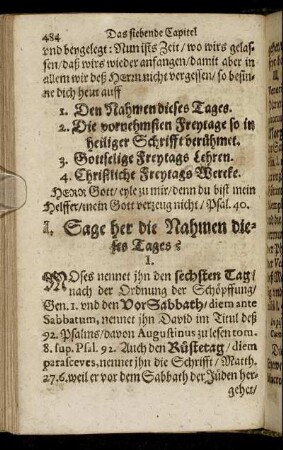 484 Das siebende Capitel
vnd beygelegt: Nun ists Zeit / wo wirs gelas-
sen / daß wirs wieder anfangen / damit aber in
allem wir deß HErrn nicht vergessen / so besin-
ne dich heut auff
1. Den Nahmen dieses Tages.
2. Die vornehmsten Freytage so in
heiliger Schrifft berühmet.
3. Gottselige Freytags Lehren.
4. Christliche Freytags Wercke.
HERR Gott / eyle zu mir / denn du bist mein
Helffer / mein Gott verzeug nicht / Psal. 40.
Sage her die Nahmen die-
ses Tages?
1.
MOses nennet jhn den sechsten Tag /
nach der Ordnung der Schöpffung /
Gen. 1. vnd den VorSabbath / diem ante
Sabbatum, nennet jhn David im Titul deß
92. Psalms / davon Augustinus zu lesen tom.
8. sup. Psal. 92. Auch den Rüstetag / diem
parasceves, nennet jhn die Schrifft / Matth.
27.6. weil er vor dem Sabbath der Jüden her-
gehet /